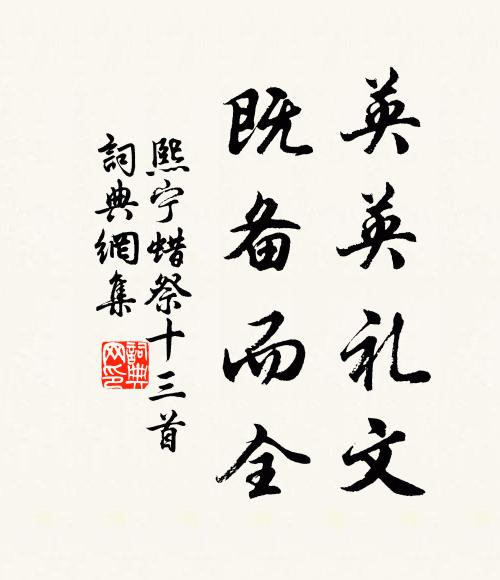 英英礼文
既备而全
熙宁蜡祭十三首
詞典網集
詞典
网印